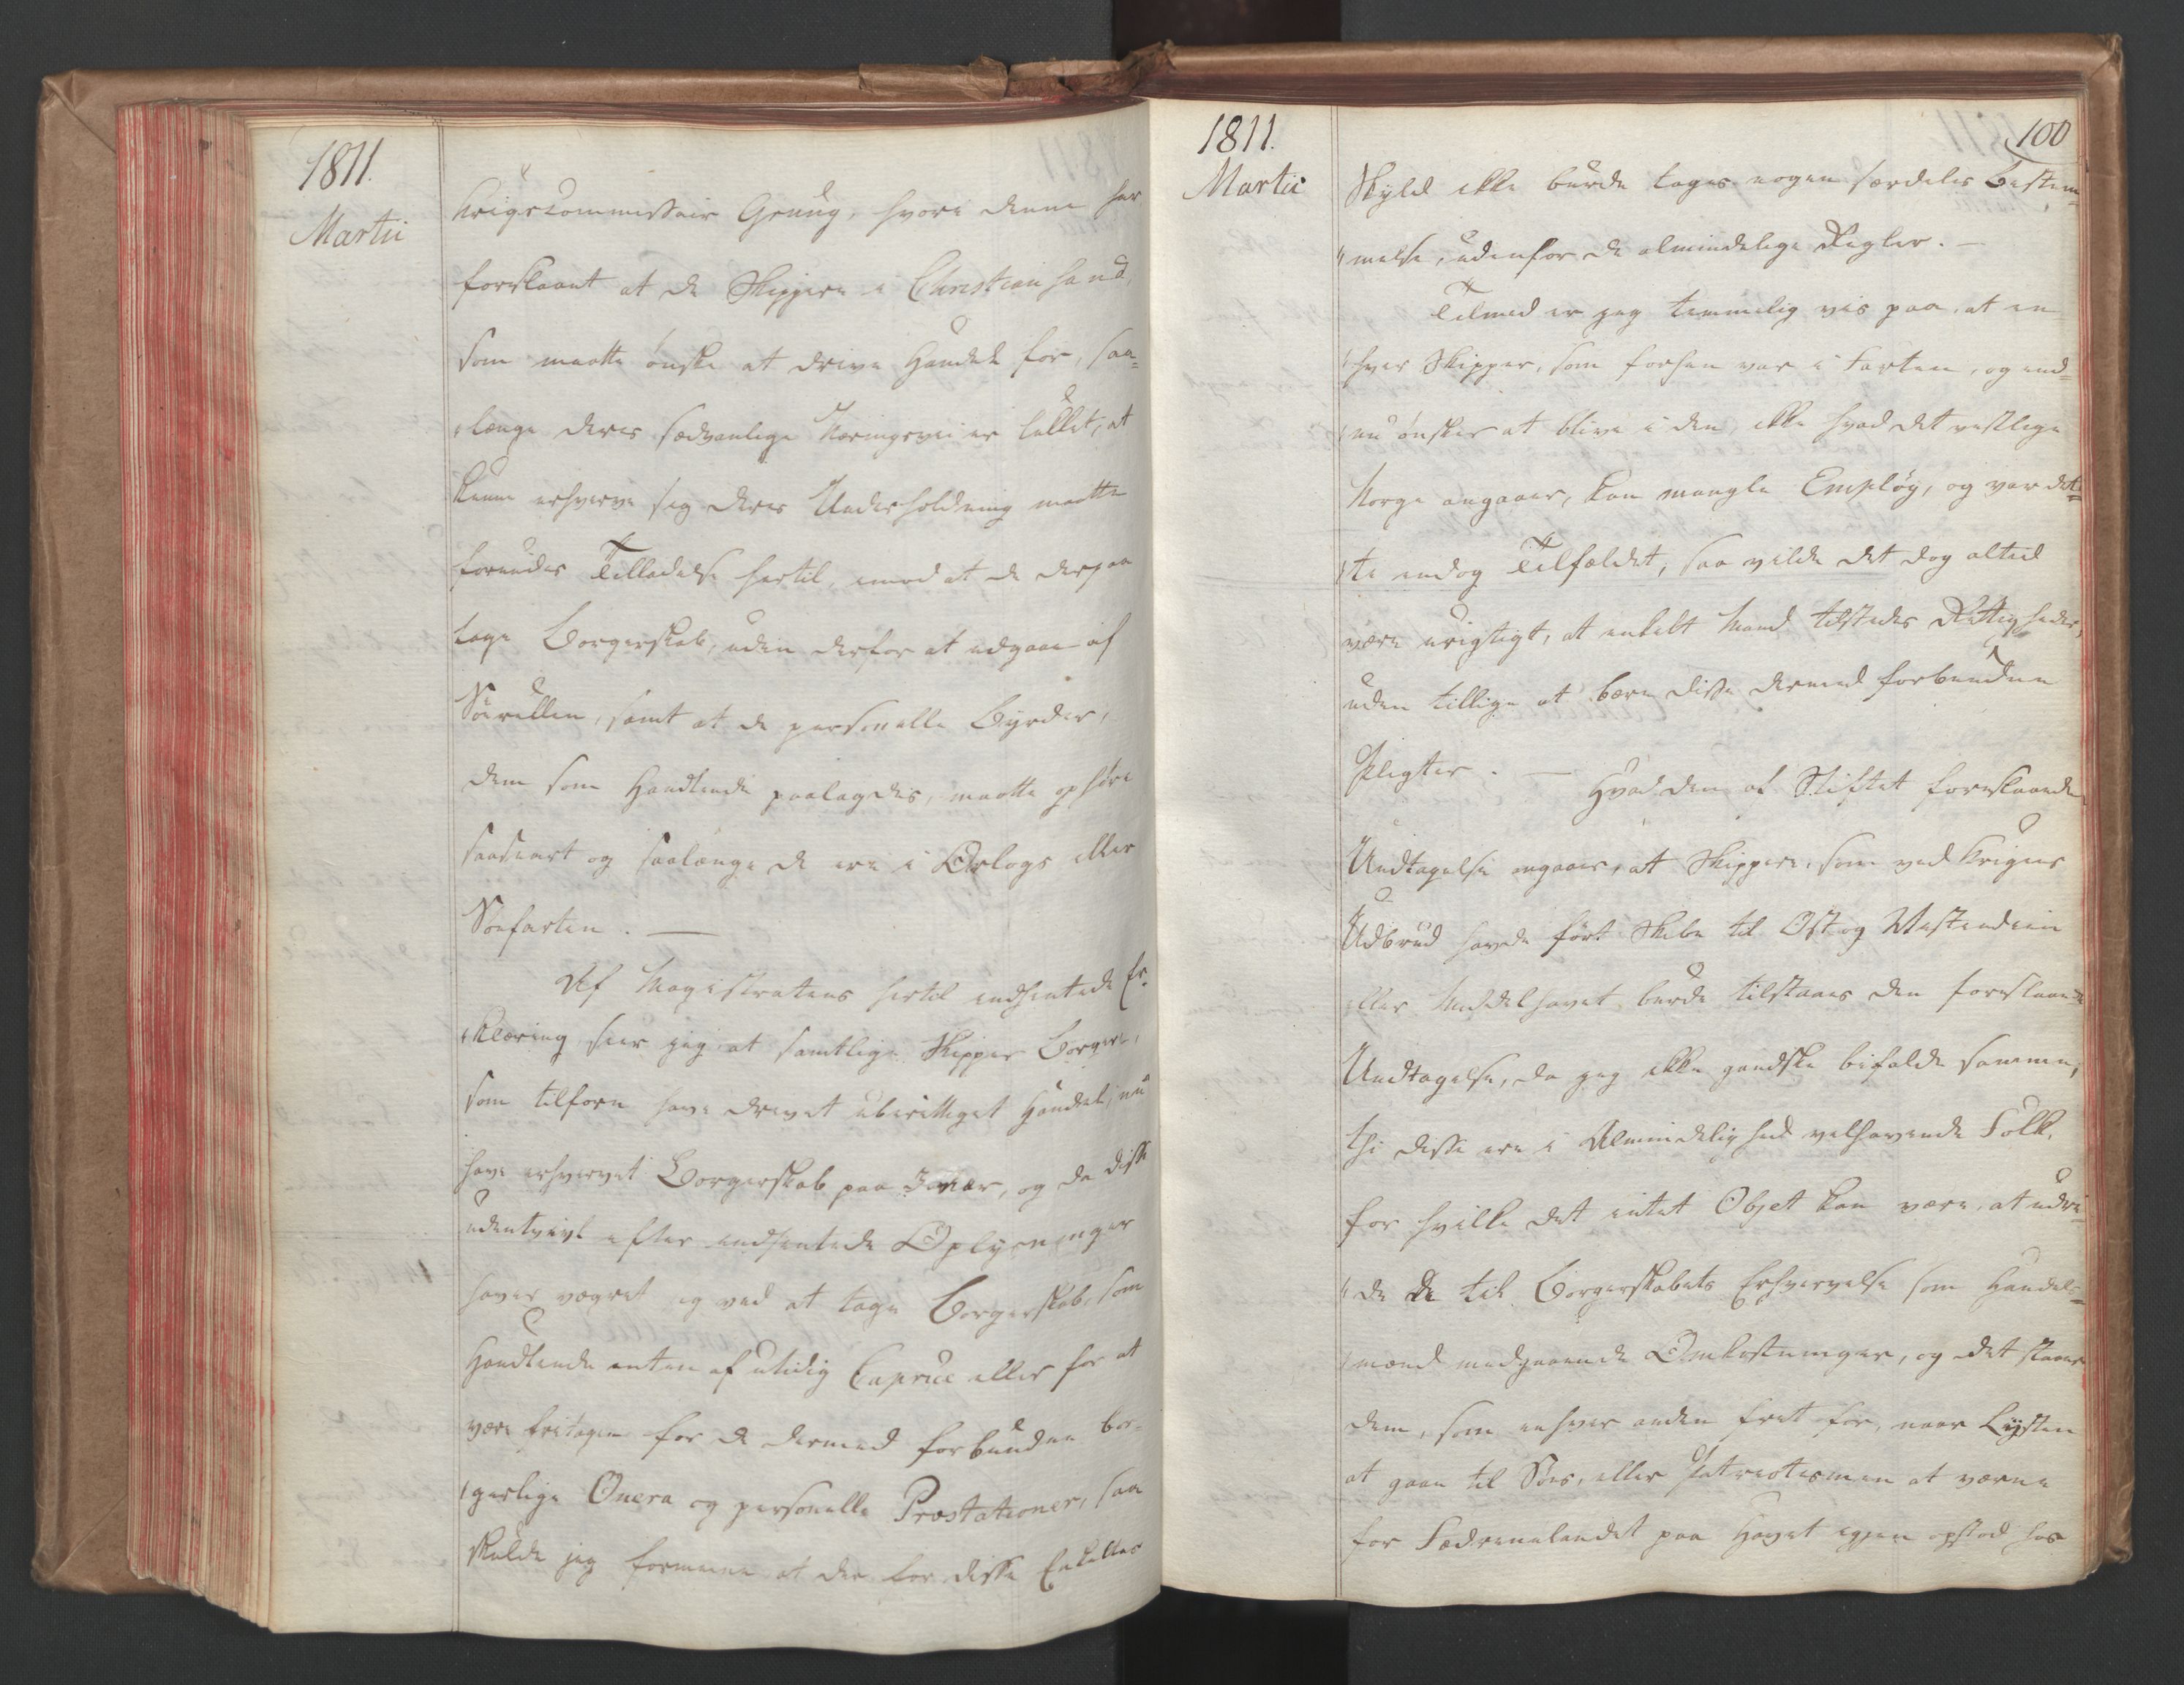 1811.
Martii
Krigscommissair Grüüg, hvori denne har
foreslaaet at de Skippere i Christiansand,
som maatte ønske at drive Handel for, saa=
længe deres sædvanlige Næringsvei er lukket, at
kunne erhverve sig deres Underholdning maatte
forundes Tilladelse hertil, imod at de derpaa
tage Borgerskab, uden derfor at udgaae af
Søerullen, samt at de personelle Byrder,
dem som Handlende paalagdes, maatte ophøre
saasnart og saalænge de ere i Orlogs eller
Søefarten. —
Af Magistratens hertil indhentede Er-
klæring seer jeg at samtlige Skipper Borgere,
som tilforn have drevet uberettiget Handel, nu
have erhvervet Borgerskab paa 3 Aar, og da disse
udentvivl efter indhentede Oplysninger
haver vægret sig ved at tage Borgerskab, som
Handlende enten af utidig Caprice eller for at
være fritagen for de dermed forbundne bor-
gerlige Onera og personelle Præstationer, saa
skulde jeg formene at der for disse Enkeltes
1811.
Martii
100
Skyld ikke burde tages nogen særdeles Bestem=
melse, udenfor de almindelige Regler. —
Tilmed er jeg temmelig vis paa, at en
hver Skipper, som forhen var i Farten, og end=
nu ønsker at blive i den, ikke hvad det vestlige
Norge angaaer, kan mangle Empløy, og var det=
te endog Tilfældet, saa vilde det dog altid
være urigtigt, at enkelt Mand tilstedes Rettigheder,
uden tillige at bære disse dermed forbundne
Pligter. — Hvad den af Stiftet foreslaaede
Undtagelse angaaer, at Skippere, som ved Krigens
Udbrud havde ført Skibe til Ost og Vestindien
eller Middelhavet burde tilstaaes den foreslaaede
Undtagelse, da jeg ikke gandske bifalde samme,
thi disse ere i Almindelighed velhavende Folk,
for hvilke det intet Objet kan være, at udre=
de de til Borgerskabets Erhvervelse som Handels=
mænd medgaaende Omkostninger, og det staaer
dem, som enhver anden frit for, naar Lysten
at gaae til Søes, eller Patriotismen at værne
for Fædrenelandet paa Havet igjen opstod hos